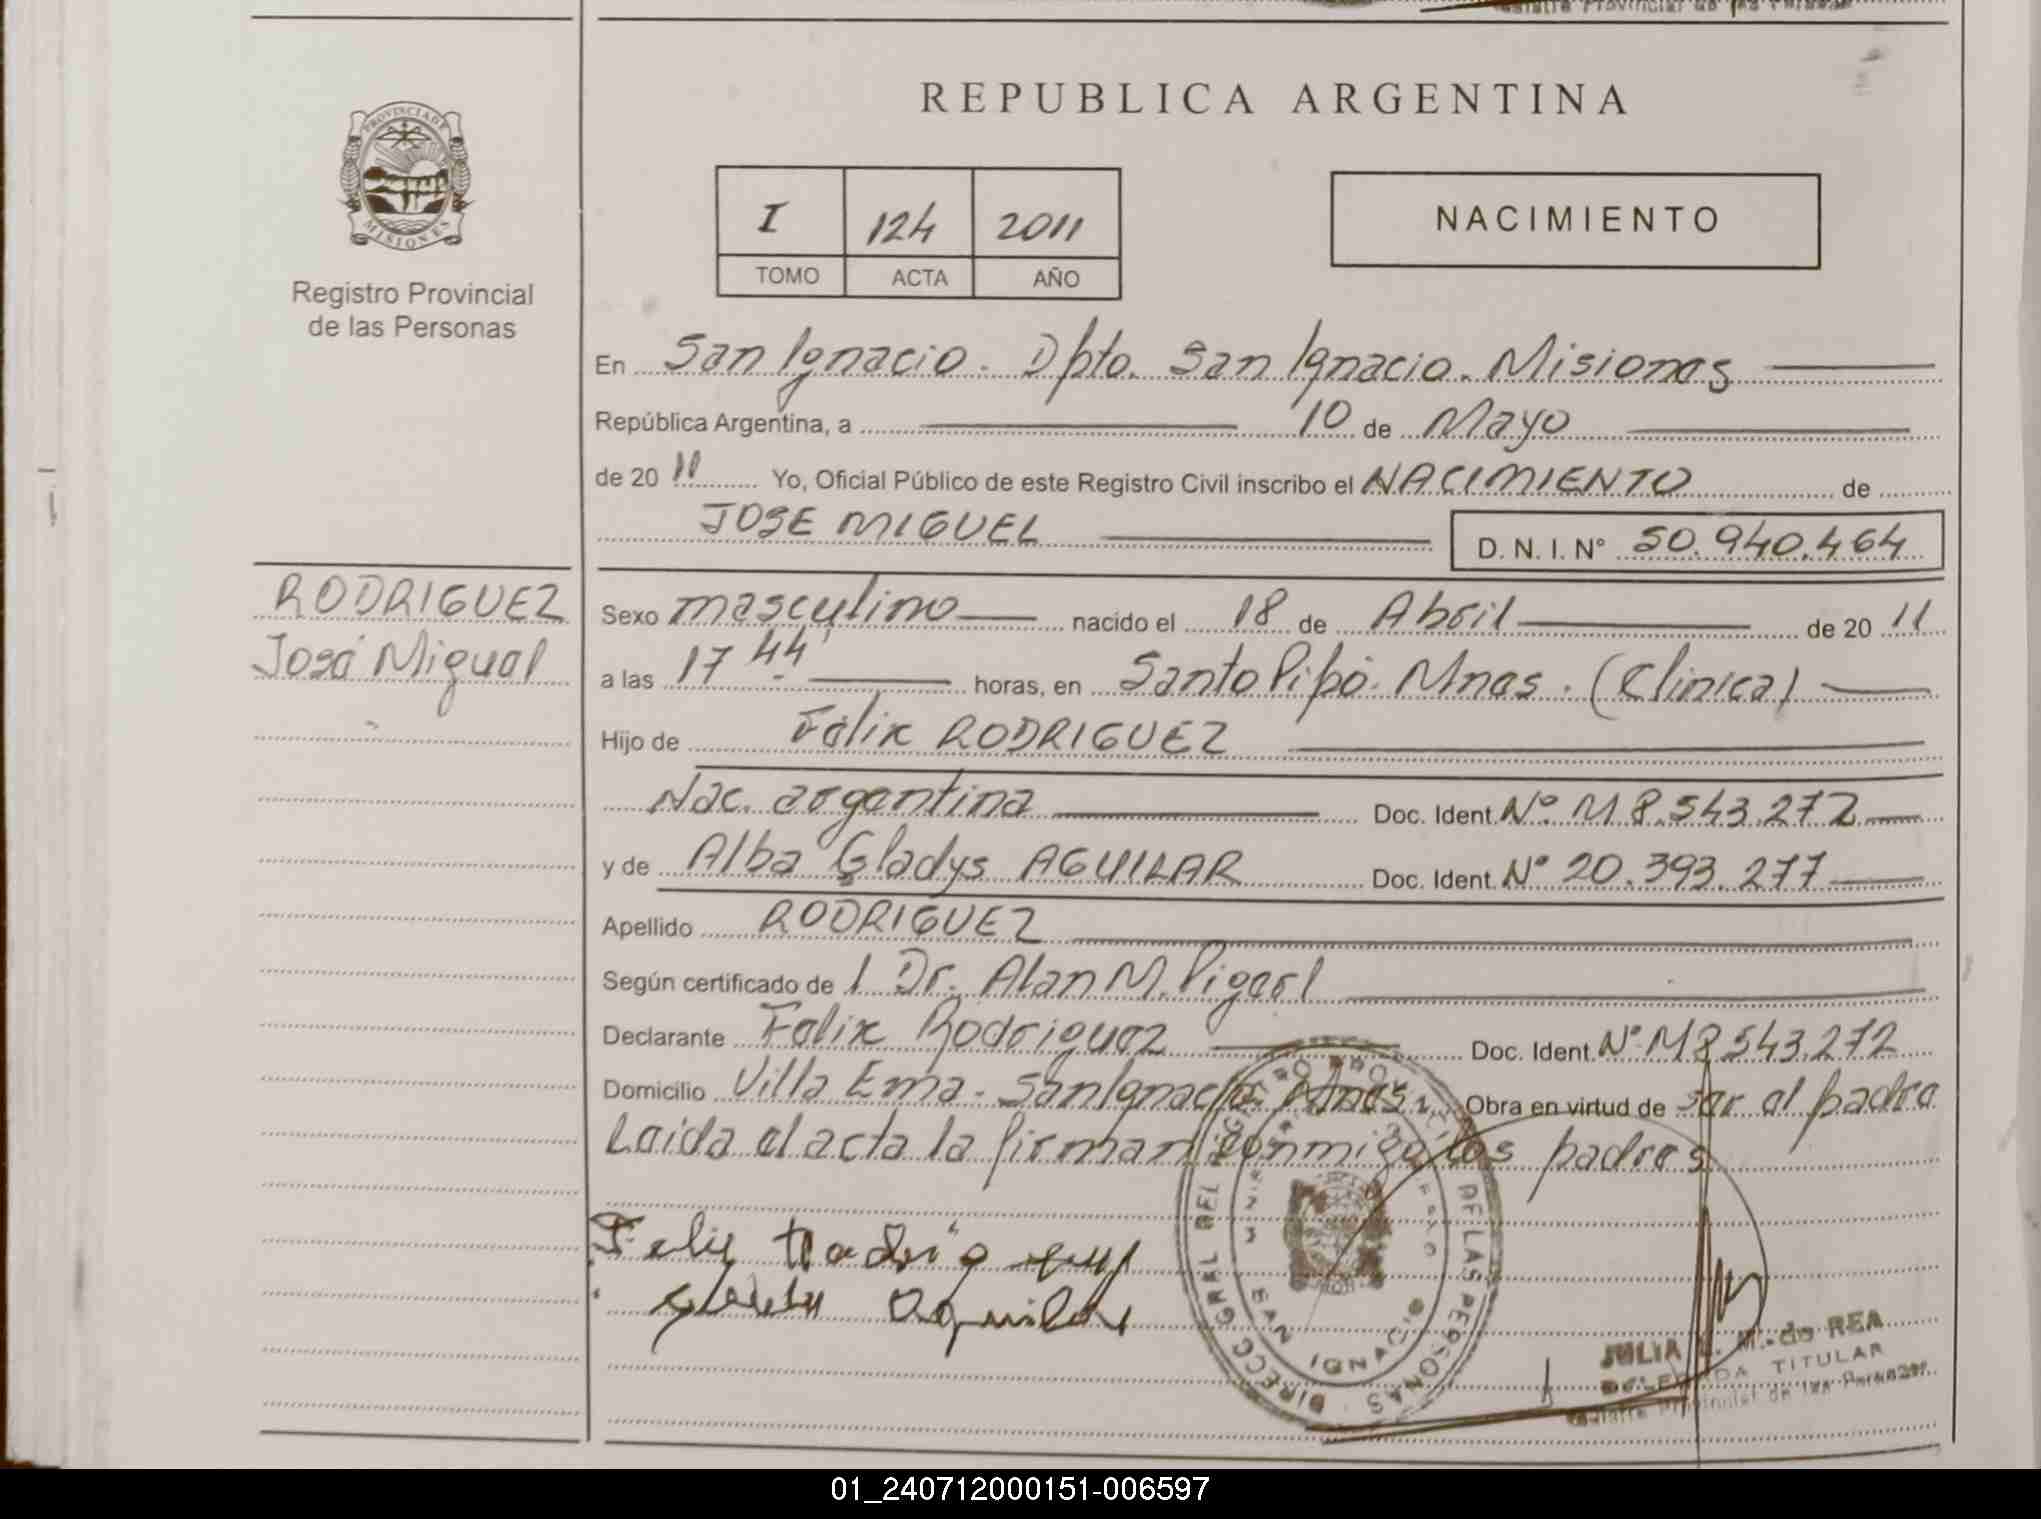 REPUBLICA ARGENTINA
PROVINCIA DE
MISIONES
Registro Provincial
de las Personas
I 124 2011
TOMO ACTA AÑO
NACIMIENTO
En San Ignacio. Dpto. San Ignacio. Misiones
República Argentina, a 10 de Mayo
de 2011 Yo, Oficial Público de este Registro Civil inscribo el NACIMIENTO de
JOSE MIGUEL D. N. I. Nº 50.940.464
RODRIGUEZ
José Miguel
Sexo masculino nacido el 18 de Abril de 2011
a las 17 44' horas, en Santo Pipó. Mnes. (Clinica)
Hijo de Félix RODRIGUEZ
Nac. argentina Doc. Ident. Nº M 8.543.272
y de Alba Gladys AGUILAR Doc. Ident. Nº 20.393.277
Apellido RODRIGUEZ
Según certificado de l Dr. Alan M.
Declarante Felix Rodriguez Doc. Ident. Nº M 8543.272
Domicilio Villa Ema - San Ignacio Mnes. Obra en virtud de ser el padre
Leida el acta la firman conmigo los padres
Felix Rodriguez
Aguilar
DIRECC GRAL DEL REGISTRO PROVINCIAL DE LAS PERSONAS
SAN IGNACIO
JULIA M. de REA
DELEGADA TITULAR
Provincial de las Personas
01_240712000151-006597